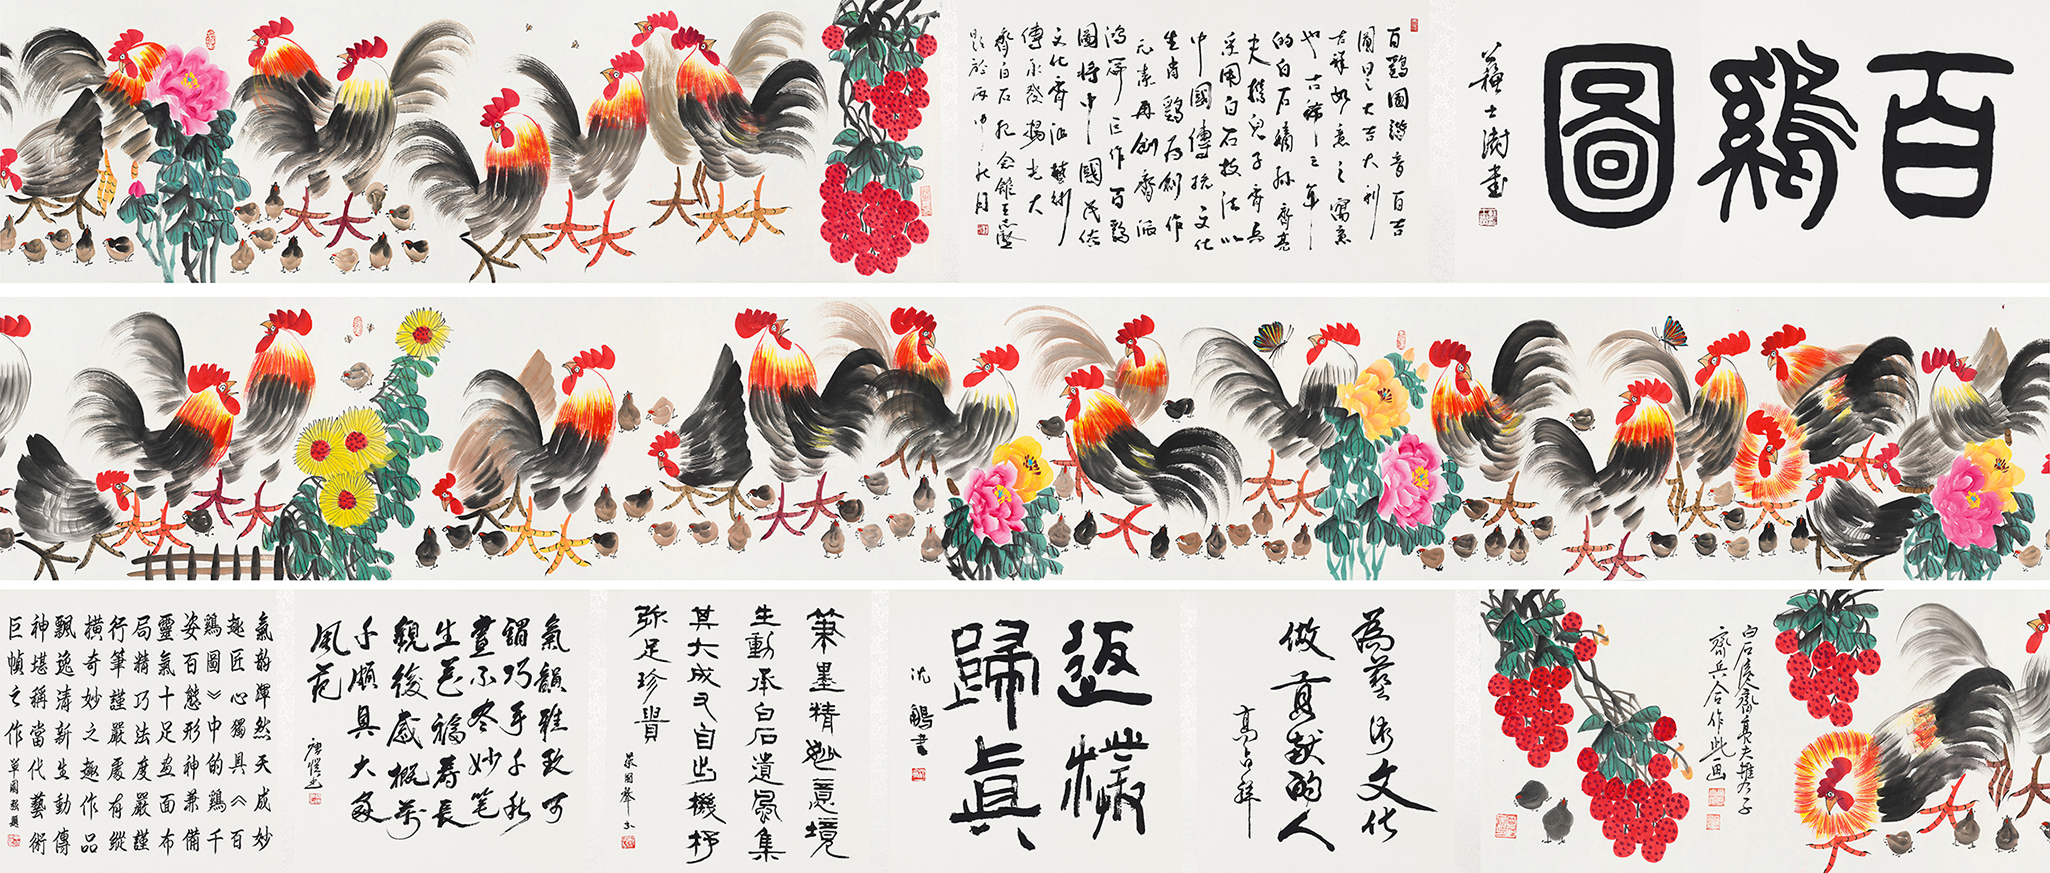 百鷄圖
蘇士澍書
百鷄圖諧音百吉
圖曰之大吉大利
吉祥如意之寓意
也古稀之年
的白石嫡孫齊亮
夫携兒子齊兵
采用白石技法以
中國傳統文化
生肖鷄为創作
元素再創齊派
鴻篇巨作百鷄
圖将中國民俗
文化齊派藝術
傳承發揚光大
齊白石紀念館王志
题於丙申秋月
白石后裔齊亮夫攜子
齊兵合作此画
為藝術文化
做貢献的人
高占祥
返樸
歸真
沈鵬書
筆墨精妙意境
生動承白石遺風集
其大成又自出機杼
弥足珍貴
氣韻雅致可
謂巧手千秋
畫不尽妙笔
生花福壽長
觀後感概萬
千頗具大家
風范
氣韵渾然天成妙
趣匠心獨具《百
鷄圖》中的鷄千
姿百態形神兼備
靈氣十足畫面布
局精巧法度嚴謹
行筆謹嚴處有縱
横奇妙之趣作品
飄逸清新生動傳
神堪稱當代藝術
巨幀之作